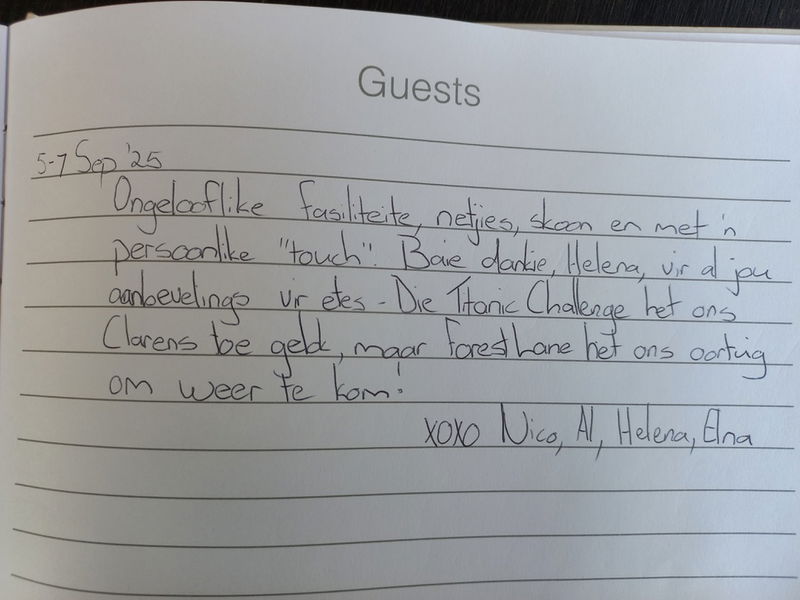 Guests
5-7 Sep '25
Ongelooflike fasiliteite, netjies, skoon en met 'n
persoonlike "touch". Baie dankie, Helena, vir al jou
aanbevelings vir etes - Die Titanic Challenge het ons
Clarens toe gelok, maar Forest Lane het ons oortuig
om weer te kom!
XOXO Nico, Al, Helena, Elna